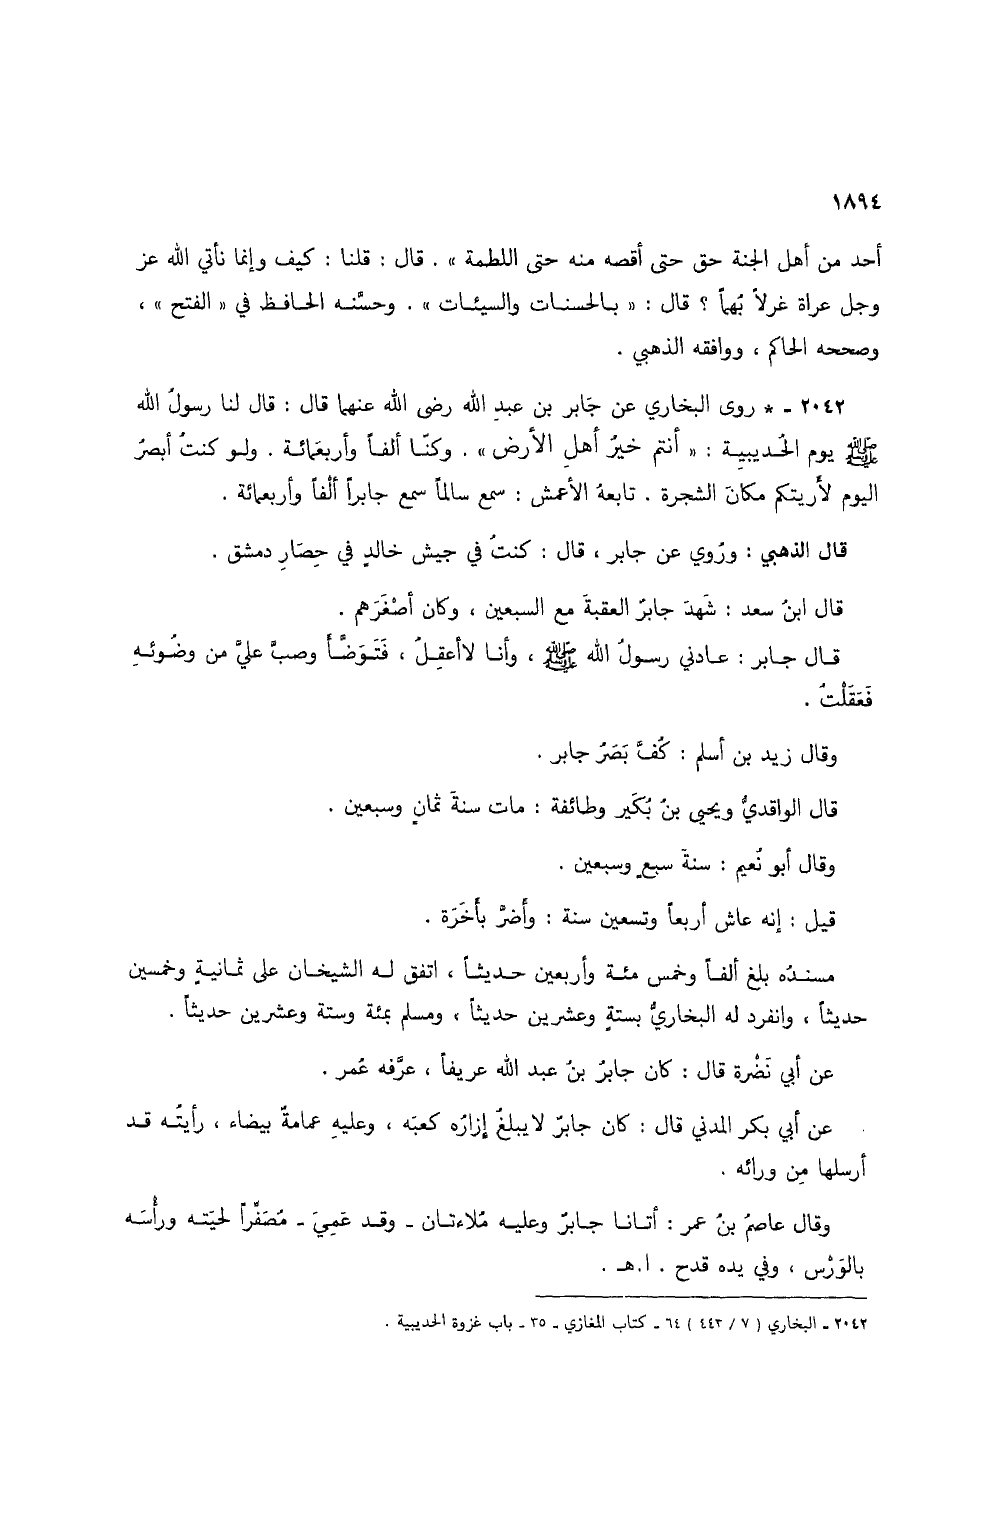 ١٨٩٤
أحد من أهل الجنة حق حتى أقصه منه حتى اللطمة » . قال : قلنا : كيف وإنما نأتي الله عز
وجل عراة غرلاً بُهماً ؟ قال : « بـالحسنات والسيئات » . وحسَّنـه الحافـظ في « الفتح » ،
وصححه الحاكم ، ووافقه الذهبي .
٢٠٤٢ ـ * روى البخاري عن جَابر بن عبدِ الله رضى الله عنهما قال : قال لنا رسولُ الله
ﷺ يوم الحُديبيـة : « أنتم خيرُ أهلِ الأرض » . وكنّـا ألفـاً وأربعَمائـة . ولـو كنتُ أبصرُ
اليوم لأريتكم مكانَ الشجرة . تابعهُ الأعمش : سمع سالماً سمع جابراً ألْفاً وأربعمائة .
قال الذهبي : ورُوي عن جابر ، قال : كنتُ في جيش خالدٍ في حِصَارِ دمشق .
قال ابنُ سعد : شَهِدَ جابرٌ العقبةَ مع السبعين ، وكان أصْغَرَهم .
قـال جـابر : عـادني رسـولُ الله ﷺ ، وأنـا لاأعقِـلُ ، فَتَـوَضَّـأ وصبَّ عليَّ من وضُوئـهِ
فَعَقَلْتُ .
وقال زيد بن أسلم : كُفَّ بَصَرُ جابر .
قال الواقديُّ ويحيى بنُ بُكَير وطائفة : مات سنةَ ثمانٍ وسبعين .
وقال أبو نُعيم : سنةَ سبعٍ وسبعين .
قيل : إنه عاش أربعاً وتسعين سنة : وأَضرَّ بأَخَرَة .
مسنـدُه بلغ ألفـاً وخمس مئـة وأربعين حـديثـاً ، اتفق لـه الشيخـان على ثمـانيـةٍ وخمسين
حديثاً ، وانفرد له البخاريُّ بستةٍ وعشرين حديثاً ، ومسلم بمئة وستة وعشرين حديثاً .
عن أبي نَضْرة قال : كان جابرُ بنُ عبد الله عريفاً ، عرَّفه عُمر .
عن أبي بكر المدني قال : كان جابرٌ لايبلغُ إزارُه كعبَه ، وعليهِ عمامةٌ بيضاء ، رأيتُـه قـد
أرسلها مِن ورائه .
وقال عاصمُ بنُ عمر : أتـانـا جـابرٌ وعليـه مُلاءتـان ـ وقـد عَمِيَ ـ مُصَفِّراً لحيَتـه ورأْسَـه
بالوَرْس ، وفي يده قدح . ا.هـ .
٢٠٤٢ ـ البخاري ( ٧ / ٤٤٣ ) ٦٤ ـ كتاب المغازي ـ ٣٥ ـ باب غزوة الحديبية .